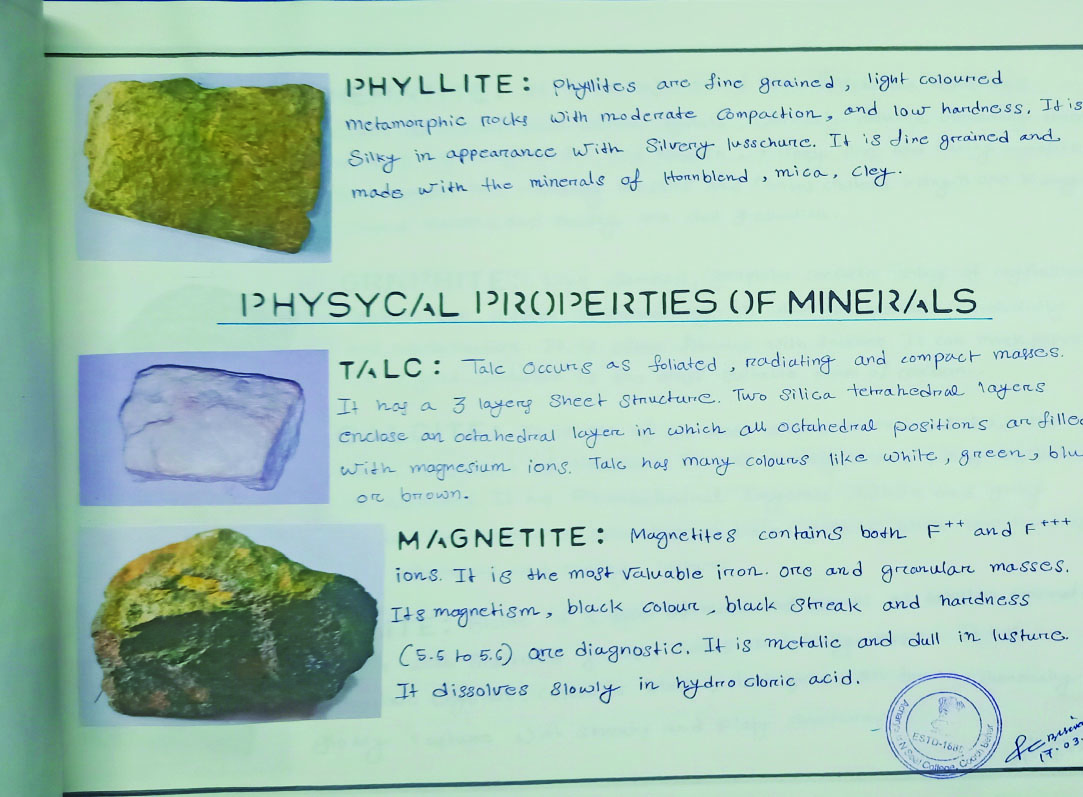 PHYLLITE: Phyllites are fine grained, light coloured
metamorphic rocks with moderate compaction, and low hardness. It is
Silky in appearance with Silvery lusschure. It is fine grained and
made with the minerals of Hornblend, mica, cley.
PHYSYCAL PROPERTIES OF MINERALS
TALC: Talc occurs as foliated, radiating and compact masses.
It has a 3 layers Sheet Structure. Two Silica tetrahedral layers
enclose an octahedral layer in which all octahedral positions are filled
with magnesium ions. Talc has many colours like white, green, blu
or brown.
MAGNETITE: Magnetites contains both F++ and F+++
ions. It is the most valuable iron. ore and granular masses.
Its magnetism, black colour, black streak and hardness
(5.5 to 5.6) are diagnostic. It is metalic and dull in lusture.
It dissolves slowly in hydro cloric acid.
ESTD-
College, Cooch Behar
17.03.